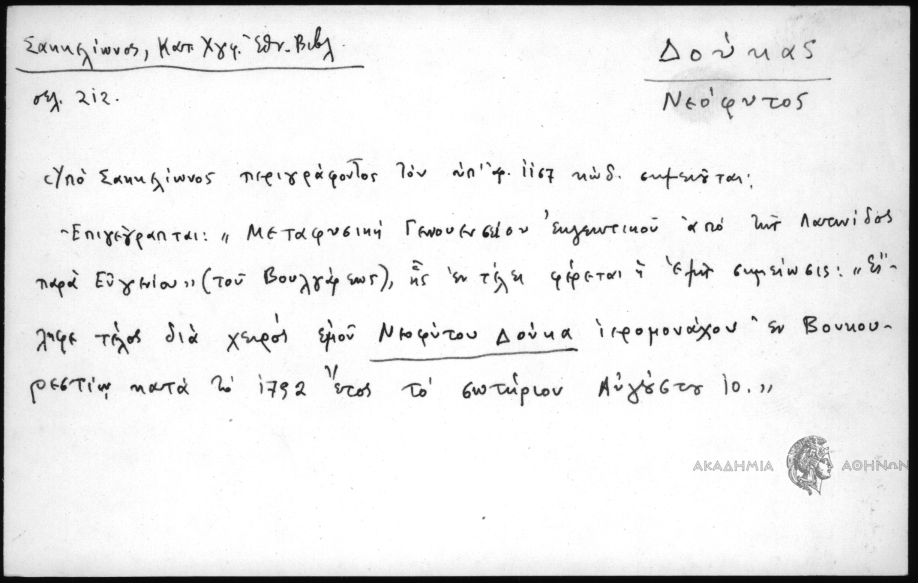 Σακκελίωνος, Κατ. Χγφ. Ἐθν. Βιβλ.
σελ. 212.
Δούκας
Νεόφυτος
Ὑπὸ Σακκελίωνος περιγράφοντος τὸν ὑπ' ἀρ. 1167 κώδ. σημειοῦται:
Ἐπιγέγραπται: „Μεταφυσικὴ Γενουενσίου ἐκ τοῦ ἀπὸ τῆς Λατινίδος
παρὰ Εὐγενίου" (τοῦ Βουλγάρεως), ἧς ἐν τέλει φέρεται ἡ ἑξῆς σημείωσις: „Εἴ-
ληφε τέλος διὰ χειρὸς ἐμοῦ Νεοφύτου Δούκα ἱερομονάχου ἐν Βουκου-
ρεστίῳ κατὰ τὸ 1792 ἔτος τὸ σωτήριον Αὐγούστου 10."
ΑΚΑΔΗΜΙΑ ΑΘΗΝΩΝ